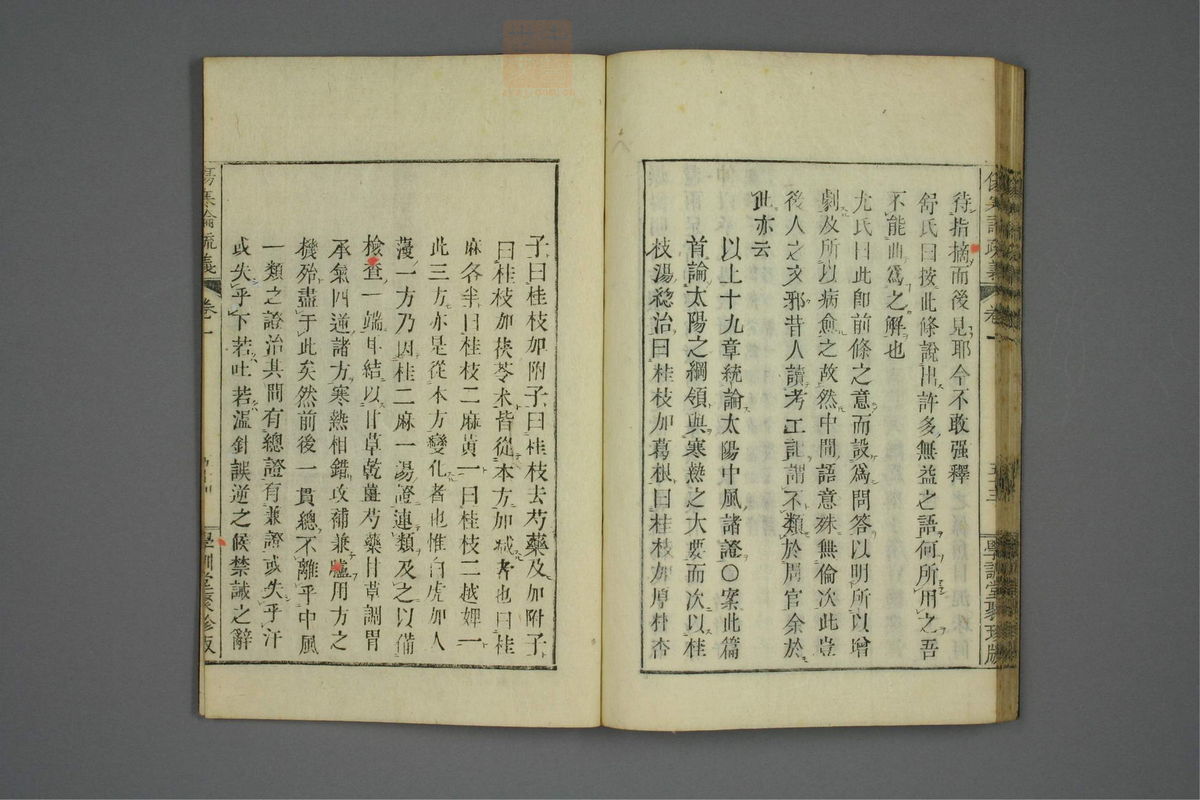 待指摘而後見耶今不敢强釋
舒氏曰按此條說出許多無益之語何所用之吾
不能曲爲之解也
尤氏曰此卽前條之意而設爲問答以明所以增
劇及所以病愈之故然中間語意殊無倫次此豈
後人之文邪昔人讀考工記謂不類於周官余於
此亦云
以上十九章統論太陽中風諸證〇案此篇
首論太陽之綱領與寒熱之大要而次以桂
枝湯總治曰桂枝加葛根曰桂枝加厚朴杏
子曰桂枝加附子曰桂枝去芍藥及加附子
曰桂枝加茯苓朮皆從本方加減者也曰桂
麻各半曰桂枝二麻黃一曰桂枝二越婢一
此三方亦是從本方變化者也惟白虎加人
薓一方乃因桂二麻一湯證連類及之以備
檢查一端耳結以甘草乾薑芍藥甘草調胃
承氣四逆諸方寒熱相錯攻補兼臚用方之
機殆盡于此矣然前後一貫總不離乎中風
一類之證治其間有總證有兼證或失乎汗
或失乎下若吐若溫針誤逆之候禁誡之辭
傷寒論疏義
卷一
學訓堂聚珍版